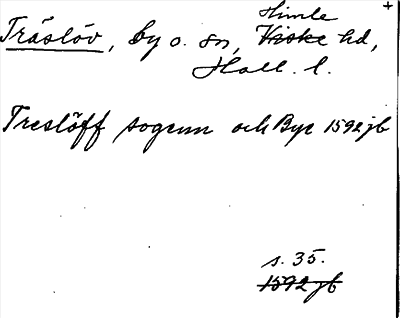 +
Himle
Träslöv, by o. sn, Viske hd,
Hall. l.
Treslöff sogenn och Bye 1592 jb
s. 35.
1592 jb